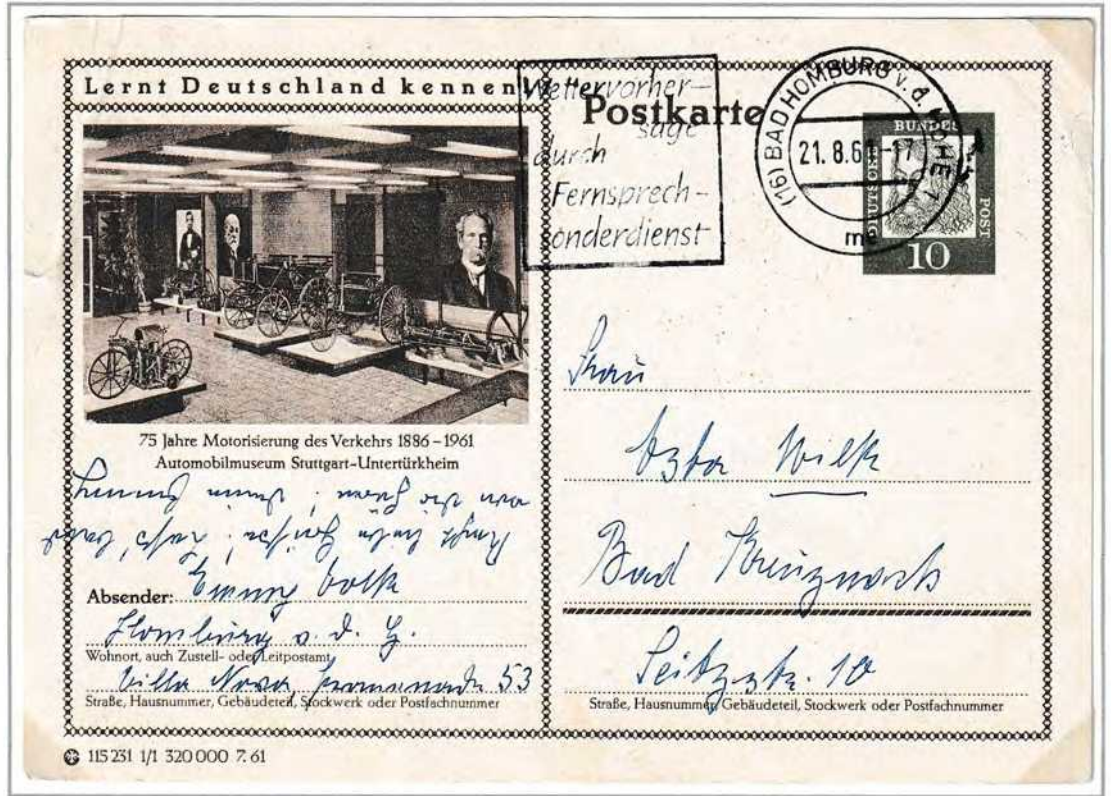 Lernt Deutschland kennen!
Wettervorher-
sage
durch
Fernsprech-
sonderdienst
Postkarte
(16) BAD HOMBURG v.d. HÖHE 1
21.8.61-17
me
DEUTSCHE
BUNDES
POST
10
75 Jahre Motorisierung des Verkehrs 1886–1961
Automobilmuseum Stuttgart-Untertürkheim
Absender: Emmy
Homburg v. d. H.
Wohnort, auch Zustell- oder Leitpostamt
Villa Nova, Promenade 53
Straße, Hausnummer, Gebäudeteil, Stockwerk oder Postfachnummer
Frau
Wilk
Bad Kreuznach
Seitzstr. 10
Straße, Hausnummer, Gebäudeteil, Stockwerk oder Postfachnummer
115 231 1/1 320 000 7. 61